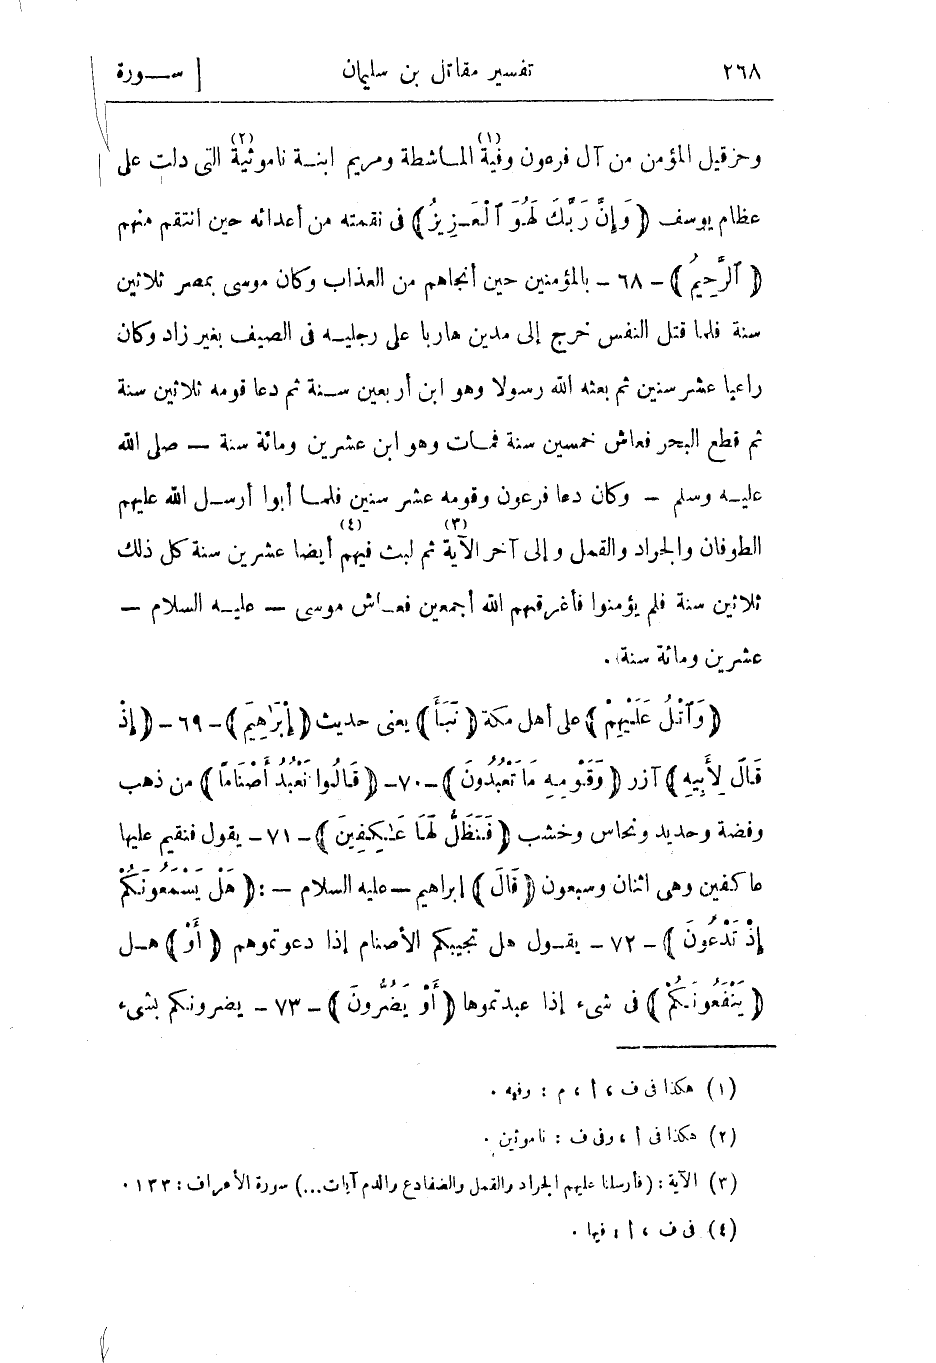 ٢٦٨ تفسير مقاتل بن سليمان [ ســورة
وحزقيل المؤمن من آل فرعون وفية(١) الماشطة ومريم ابنة ناموثية(٢) التى دلت على
عظام يوسف ﴿ وَإِنَّ رَبَّكَ لَهُوَ ٱلْعَزِيزُ ﴾ فى نقمته من أعدائه حين انتقم منهم
﴿ ٱلرَّحِيمُ ﴾ - ٦٨ - بالمؤمنين حين أنجاهم من العذاب وكان موسى بمصر ثلاثين
سنة فلما قتل النفس خرج إلى مدين هاربا على رجليه فى الصيف بغير زاد وكان
راعيا عشر سنين ثم بعثه الله رسولا وهو ابن أربعين سنة ثم دعا قومه ثلاثين سنة
ثم قطع البحر فعاش خمسين سنة فمات وهو ابن عشرين ومائة سنة — صلى الله
عليه وسلم — وكان دعا فرعون وقومه عشر سنين فلما أبوا أرسل الله عليهم
الطوفان والجراد والقمل وإلى آخر الآية(٣) ثم لبث فيهم(٤) أيضا عشرين سنة كل ذلك
ثلاثين سنة فلم يؤمنوا فأغرقهم الله أجمعين فعاش موسى — عليه السلام —
عشرين ومائة سنة .
﴿ وَٱتْلُ عَلَيْهِمْ ﴾ على أهل مكة ﴿ نَبَأَ ﴾ يعنى حديث ﴿ إِبْرَٰهِيمَ ﴾ - ٦٩ - ﴿ إِذْ
قَالَ لِأَبِيهِ ﴾ آزر ﴿ وَقَوْمِهِ مَا تَعْبُدُونَ ﴾ - ٧٠ - ﴿ قَالُوا نَعْبُدُ أَصْنَامًا ﴾ من ذهب
وفضة وحديد ونحاس وخشب ﴿ فَنَظَلُّ لَهَا عَٰكِفِينَ ﴾ - ٧١ - يقول فنقيم عليها
عاكفين وهى اثنان وسبعون ﴿ قَالَ ﴾ إبراهيم — عليه السلام — : ﴿ هَلْ يَسْمَعُونَكُمْ
إِذْ تَدْعُونَ ﴾ - ٧٢ - يقول هل تجيبكم الأصنام إذا دعوتموهم ﴿ أَوْ ﴾ هل
﴿ يَنْفَعُونَكُمْ ﴾ فى شىء إذا عبدتموها ﴿ أَوْ يَضُرُّونَ ﴾ - ٧٣ - يضرونكم بشىء
(١) هكذا فى ف ، أ ، م : رفيه .
(٢) هكذا فى أ ، وفى ف : ناموئين .
(٣) الآية : (فأرسلنا عليهم الجراد والقمل والضفادع والدم آيات...) سورة الأعراف : ١٣٣ .
(٤) فى ف ، أ : فيها .